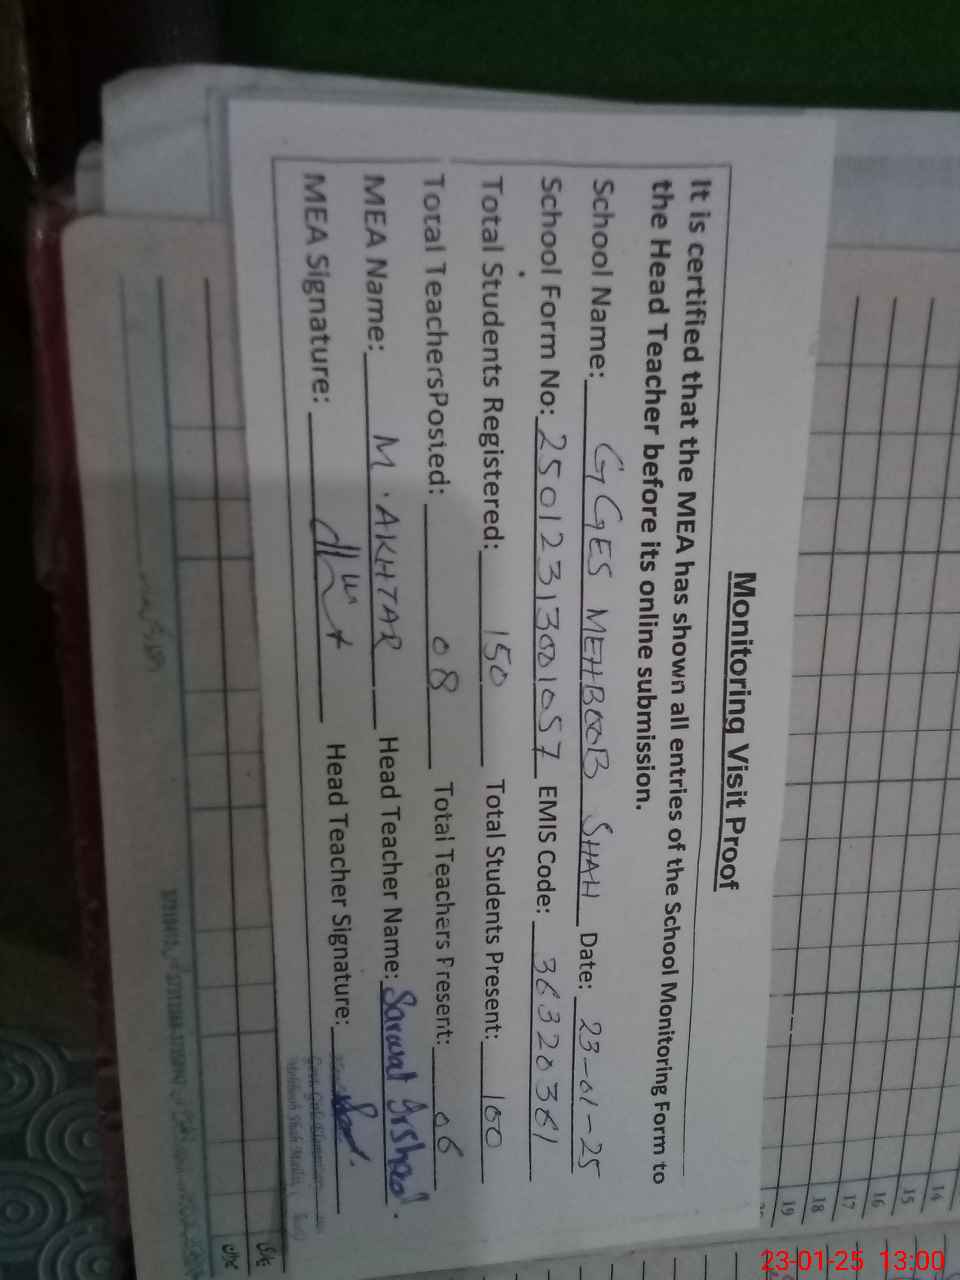 Monitoring Visit Proof
It is certified that the MEA has shown all entries of the School Monitoring Form to
the Head Teacher before its online submission.
School Name: GGES MEHBOOB SHAH Date: 23-01-25
School Form No: 25012313001057 EMIS Code: 36320361
Total Students Registered: 150 Total Students Present: 100
Total TeachersPosted: 08 Total Teachers Present: 06
MEA Name: M. AKHTAR Head Teacher Name: Sarwat Irshad.
MEA Signature: Head Teacher Signature:
14
15
16
17
18
19
23-01-25 13:00